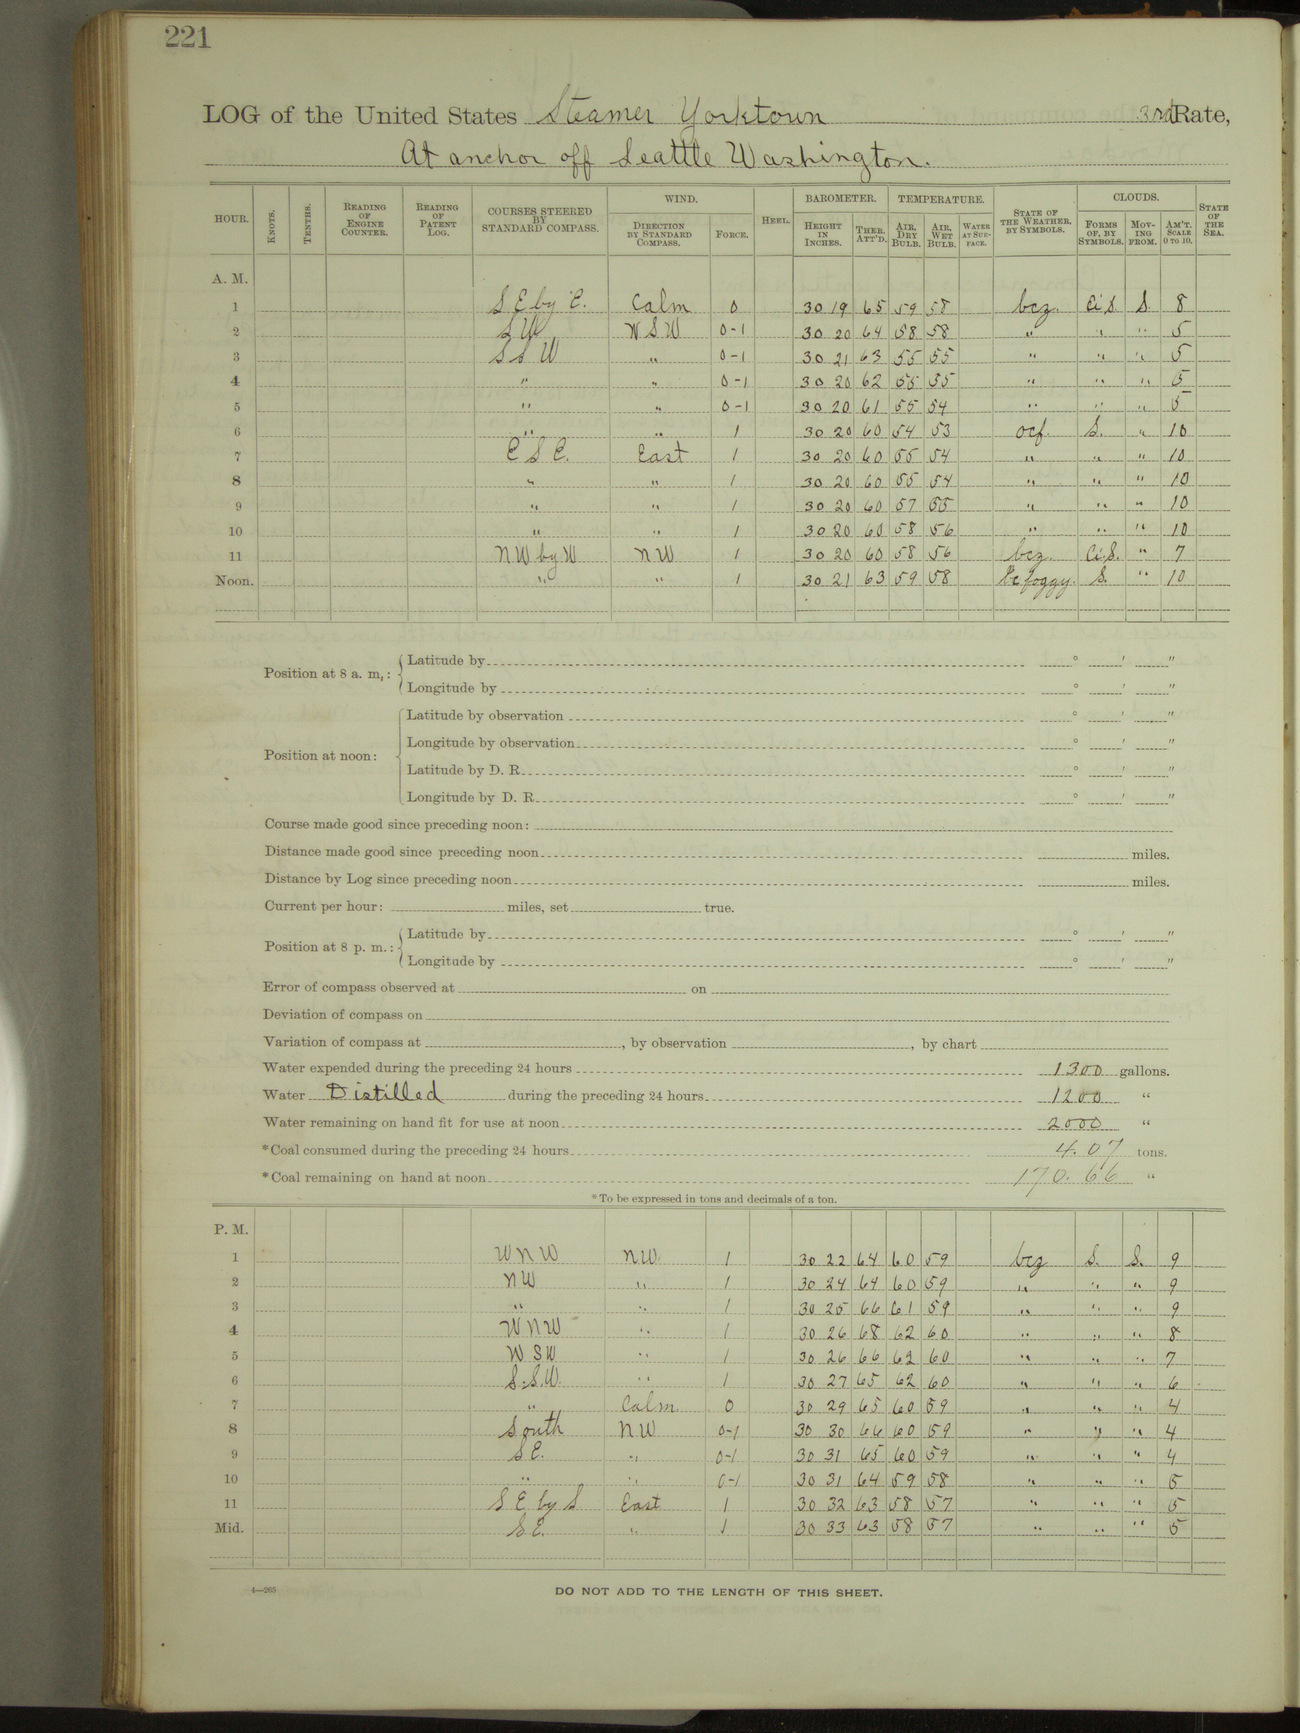 221
LOG of the United States Steamer Yorktown 3rd Rate,
At anchor off Seattle Washington.
HOUR. KNOTS. TENTHS. READING OF ENGINE COUNTER. READING OF PATENT LOG. COURSES STEERED BY STANDARD COMPASS. WIND. DIRECTION BY STANDARD COMPASS. FORCE. HEEL. BAROMETER. HEIGHT IN INCHES. THER. ATT'D. TEMPERATURE. AIR, DRY BULB. AIR, WET BULB. WATER AT SURFACE. STATE OF THE WEATHER, BY SYMBOLS. CLOUDS. FORMS OF, BY SYMBOLS. MOVING FROM. AM'T. SCALE 0 TO 10. STATE OF THE SEA.
A. M.
1 S E by E. Calm 0 30 19 65 59 58 bcz. Ci S. S. 8
2 S W W S W 0-1 30 20 64 58 58 " " " 5
3 S S W " 0-1 30 21 63 55 55 " " " 5
4 " " 0-1 30 20 62 55 55 " " " 5
5 " " 0-1 30 20 61 55 54 " " " 5
6 " " 1 30 20 60 54 53 ocf. S. " 10
7 E S E. East 1 30 20 60 55 54 " " " 10
8 " " 1 30 20 60 55 54 " " " 10
9 " " 1 30 20 60 57 55 " " " 10
10 " " 1 30 20 60 58 56 " " " 10
11 N W by W N W 1 30 20 60 58 56 bcz. Ci.S. " 7
Noon. " " 1 30 21 63 59 58 foggy. S. " 10
Position at 8 a. m,: Latitude by ° ' "
Longitude by ° ' "
Position at noon: Latitude by observation ° ' "
Longitude by observation ° ' "
Latitude by D. R. ° ' "
Longitude by D. R. ° ' "
Course made good since preceding noon:
Distance made good since preceding noon miles.
Distance by Log since preceding noon miles.
Current per hour: miles, set true.
Position at 8 p. m.: Latitude by ° ' "
Longitude by ° ' "
Error of compass observed at on
Deviation of compass on
Variation of compass at , by observation , by chart
Water expended during the preceding 24 hours 1300 gallons.
Water Distilled during the preceding 24 hours 1200 "
Water remaining on hand fit for use at noon 2000 "
*Coal consumed during the preceding 24 hours 4.07 tons.
*Coal remaining on hand at noon 170.66 "
*To be expressed in tons and decimals of a ton.
P. M.
1 W N W N W. 1 30 22 64 60 59 bcz S. S. 9
2 N W " 1 30 24 64 60 59 " " " 9
3 " " 1 30 25 66 61 59 " " " 9
4 W N W " 1 30 26 68 62 60 " " " 8
5 W S W " 1 30 26 66 62 60 " " " 7
6 S.S.W. " 1 30 27 65 62 60 " " " 6
7 " Calm 0 30 29 65 60 59 " " " 4
8 South N W 0-1 30 30 66 60 59 " " " 4
9 S E. " 0-1 30 31 65 60 59 " " " 4
10 " " 0-1 30 31 64 59 58 " " " 5
11 S E by S East 1 30 32 63 58 57 " " " 5
Mid. S E. " 1 30 33 63 58 57 " " " 5
4—265
DO NOT ADD TO THE LENGTH OF THIS SHEET.